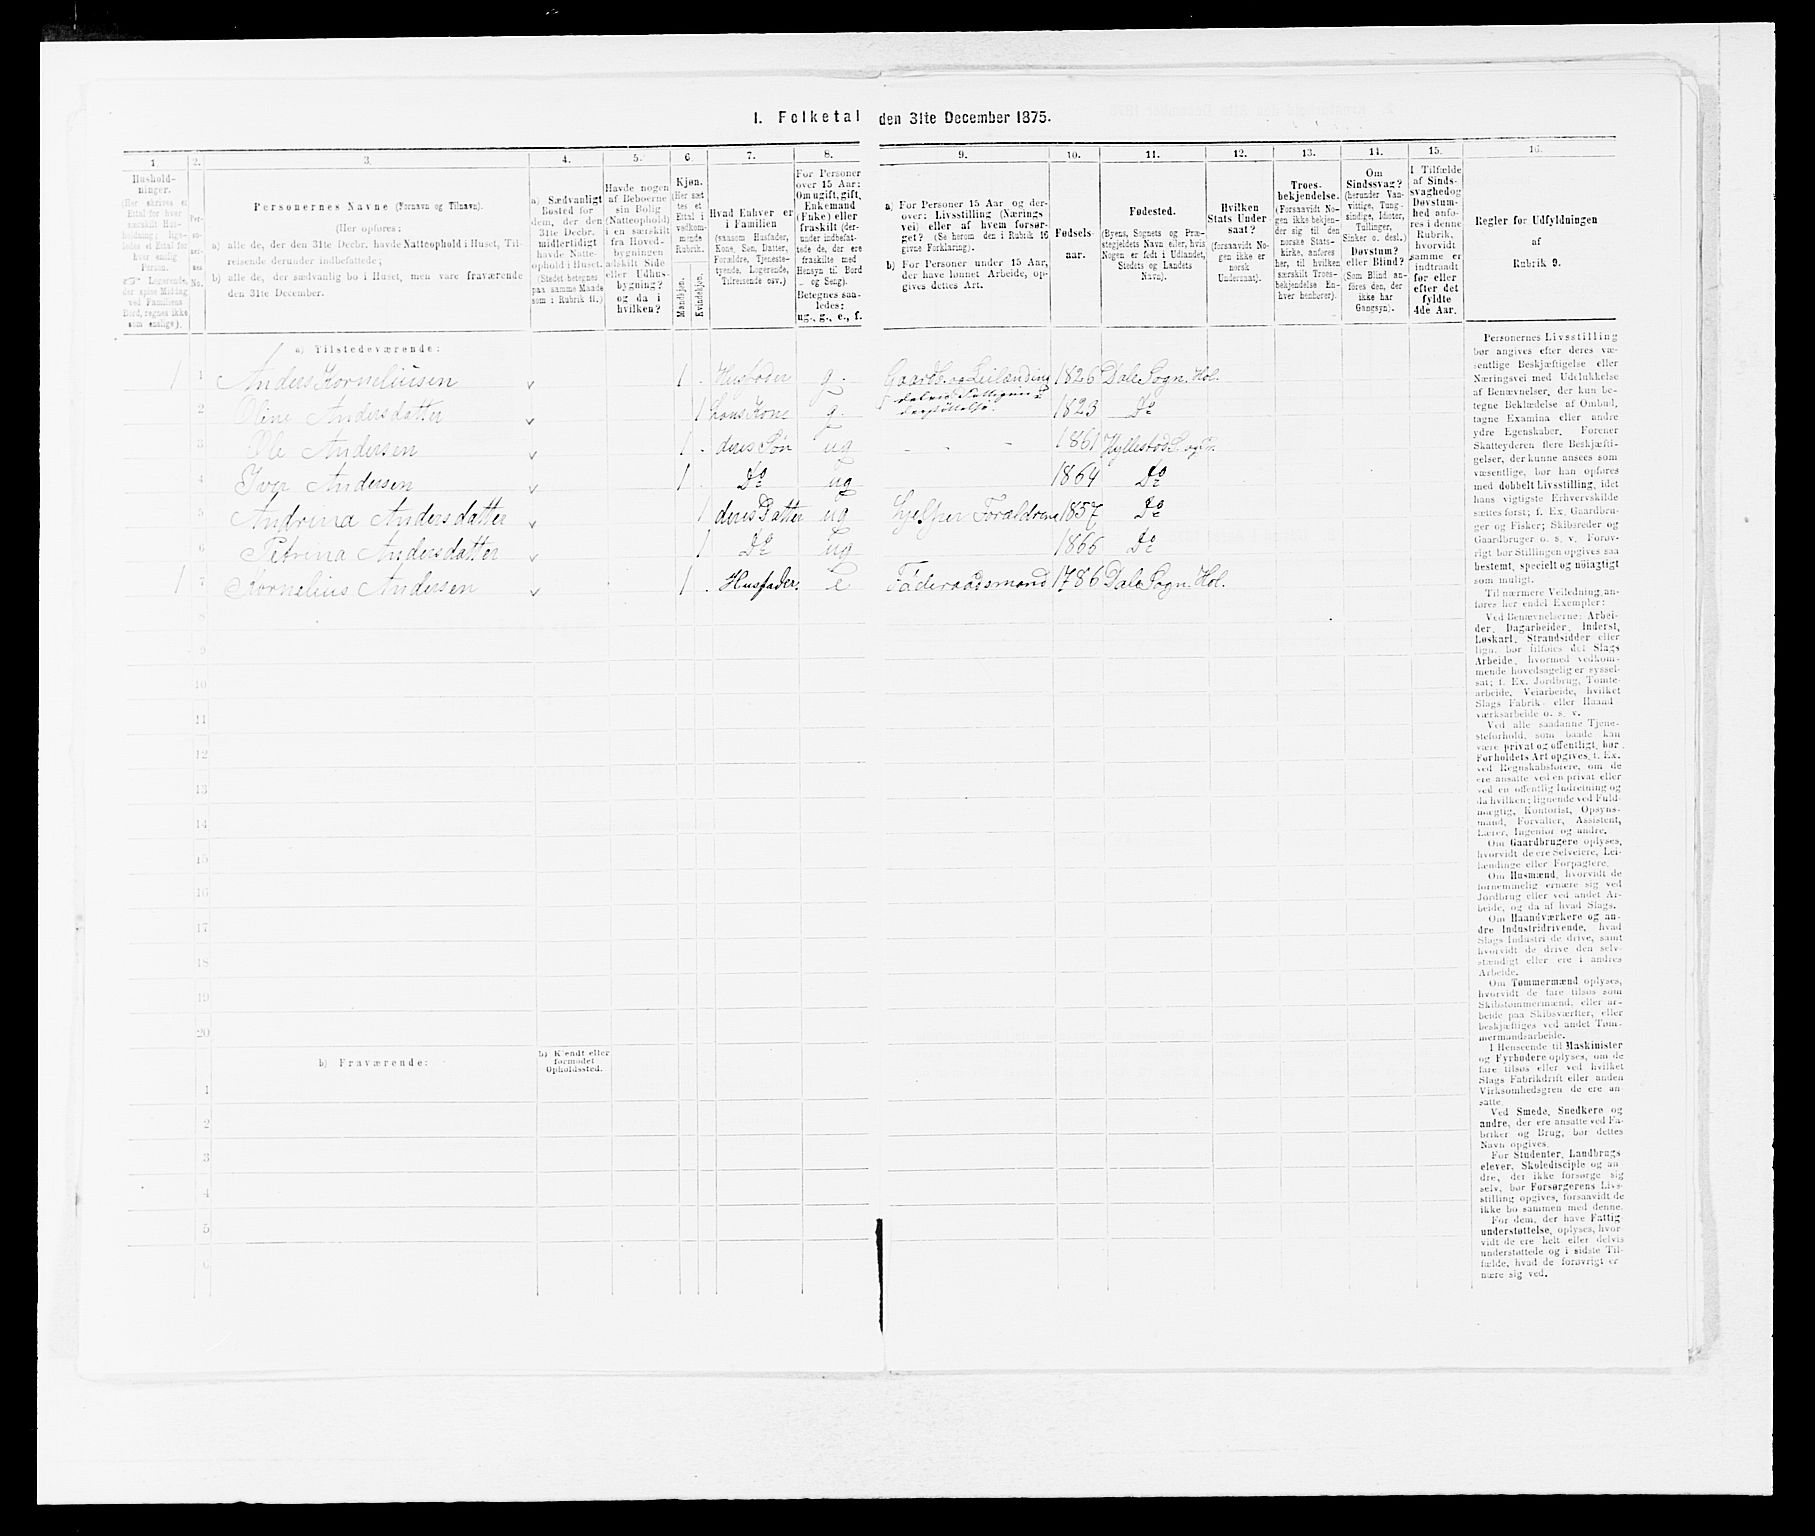 I. Folketal den 31te December 1875.
1. 2. 3. 4. 5. 6 7. 8. 9. 10. 11. 12. 13. 14. 15. 16.
Hushold-
ninger.
(Her skrives et
Ettal for hver
særskilt Hus-
holdning; lige-
ledes et Ettal for
hver enslig
Person.
Logerende,
der spise Middag
ved Familiens
Bord, regnes ikke
som enslige).
Per-
so-
ner-
nes
No.
Personernes Navne (Fornavn og Tilnavn).
(Her opføres:
a) alle de, der den 31te Decbr. havde Natteophold i Huset, Til-
reisende derunder indbefattede;
b) alle de, der sædvanlig bo i Huset, men vare fraværende
den 31te December.
a) Sædvanligt
Bosted for
dem, der den
31te Decbr.
midlertidigt
havde Natte-
ophold i Huset.
(Stedet betegnes
paa samme Maade
som i Rubrik 11.)
Havde nogen
af Beboerne
sin Bolig
(Natteophold)
i en særskilt
fra Hoved-
bygningen
adskilt Side
eller Udhus-
bygning?
og da i
hvilken?
Kjøn.
(Her sæt
tes et
Ettal i
vedkom-
mende
Rubrik.
Mandkjøn.
Kvindekjøn.
Hvad Enhver er
i Familien
(saasom Husfader,
Kone, Søn, Datter,
Forældre, Tjeneste-
tyende, Logerende,
Tilreisende osv.)
For Personer
over 15 Aar:
Om ugift, gift,
Enkemand
(Enke) eller
fraskilt (der-
under indbefat-
tede de, der ere
fraskilte med
Hensyn til Bord
og Seng).
Betegnes saa-
ledes:
ug., g., e., f.
a) For Personer 15 Aar og der-
over: Livsstilling (Nærings
vei) eller af hvem forsør-
get? (Se herom den i Rubrik 16
givne Forklaring).
b) For Personer under 15 Aar,
der have lønnet Arbeide, op-
gives dettes Art.
Fødsels-
aar.
Fødested.
(Byens, Sognets og Præ-
stegjeldets Navn eller, hvis
Nogen er født i Udlandet,
Stedets og Landets
Navn).
Hvilken
Stats Under-
saat?
(forsaavidt No-
gen ikke er
norsk
Undersaat).
Troes-
bekjendelse.
(Forsaavidt No-
gen ikke bekjen-
der sig til den
norske Stats-
kirke, anføres
her, til hvilken
særskilt Troes-
bekjendelse En-
hver henhører).
Om
Sindssvag?
(herunder Van-
vittige, Tung-
sindige, Idioter,
Tullinger,
Sinker o. desl.)
Døvstum?
eller Blind?
(Som Blind an-
føres den, der
ikke har
Gangsyn).
I Tilfælde
af Sinds-
svaghed og
Døvstum-
hed anfø-
res i denne
Rubrik,
hvorvidt
samme er
indtraadt
før eller
efter det
fyldte
4de Aar.
Regler for Udfyldningen
af
Rubrik 9.
a) Tilstedeværende:
1 1 Anders Korneliusen v 1 . Husfader g. Gaardb. og Leilænding 1826 Dale Sogn. Hol.
2 Oline Andersdatter v 1 hans Kone g 1823 Do
3 Ole Andersen v 1 . deres Søn ug - - 1861 Hyllestad
4 Iver Andersen v 1 . Do ug 1864 Do
5 Andrina Andersdatter v 1 deres Datter ug Hjelper Foraldrene 1857 Do
6 Petrina Andersdatter v 1 Do ug 1866 Do
1 7 Kornelius Andersen v 1 . Husfader. e Føderaadsmand 1786 Dale Sogn. Hol.
8
9
10
11
12
13
14
15
16
17
18
19
20
b) Fraværende:
b) Kjendt eller
formodet
Opholdssted.
1
2
3
4
5
6
Personernes Livsstilling
bør angives efter deres væ-
sentlige Beskjæftigelse eller
Næringsvei med Udelukkelse
af Benævnelser, der kun be-
tegne Beklædelse af Ombud,
tagne Examina eller andre
ydre Egenskaber. Forener
Skatteyderen flere Beskjæfti-
gelser, der kunne ansees som
væsentlige, bør han opføres
med dobbelt Livsstilling, idet
hans vigtigste Erhvervskilde
sættes først; f. Ex. Gaardbru-
ger og Fisker; Skibsreder og
Gaardbruger o. s. v. Forøv-
rigt bør Stillingen opgives saa
bestemt, specielt og nøiagtigt
som muligt.
Til nærmere Veiledning an-
føres her endel Exempler:
Ved Benævnelserne: Arbei-
der, Dagarbeider, Inderst,
Løskarl, Strandsidder eller
lign. bør tilføies det Slags
Arbeide, hvormed vedkom-
mende hovedsagelig er syssel-
sat; f. Ex. Jordbrug, Tomte-
arbeide, Veiarbeide, hvilket
Slags Fabrik- eller Haand-
værksarbeide o. s. v.
Ved alle saadanne Tjene-
steforhold, som baade kan
være privat og offentligt, bør
Forholdets Art opgives, f. Ex.
ved Regnskabsførere, om de
ere ansatte ved en privat eller
ved en offentlig Indretning og
da hvilken; lignende ved Fuld-
mægtig, Kontorist, Opsyns-
mand, Forvalter, Assistent,
Lærer, Ingeniør og andre.
Om Gaardbrugere oplyses,
hvorvidt de ere Selveiere, Lei-
lændinge eller Forpagtere.
Om Husmænd, hvorvidt de
fornemmelig ernære sig ved
Jordbrug eller ved andet Ar-
beide, og da af hvad Slags.
Om Haandværkere og an-
dre Industridrivende, hvad
Slags Industri de drive, samt
hvorvidt de drive den selv-
stændigt eller ere i andres
Arbeide.
Om Tømmermænd oplyses,
hvorvidt de fare tilsøs som
Skibstømmermænd, eller ar-
beide paa Skibsværfter, eller
beskjæftiges ved andet Tøm-
mermandsarbeide.
I Henseende til Maskinister
og Fyrbødere oplyses, om de
fare tilsøs eller ved hvilket
Slags Fabrikdrift eller anden
Virksomhedsgren de ere an-
satte.
Ved Smede, Snedkere og
andre, der ere ansatte ved Fa-
briker og Brug, bør dettes
Navn opgives.
For Studenter, Landbrugs
elever, Skoledisciple og an-
dre, der ikke forsørge sig
selv, bør Forsørgerens Livs-
stilling opgives, forsaavidt de
ikke bo sammen med denne.
For dem, der have Fattig-
understøttelse, oplyses, hvor-
vidt de ere helt eller delvis
understøttede og i sidste Til-
fælde, hvad de forøvrigt er
nære sig ved.